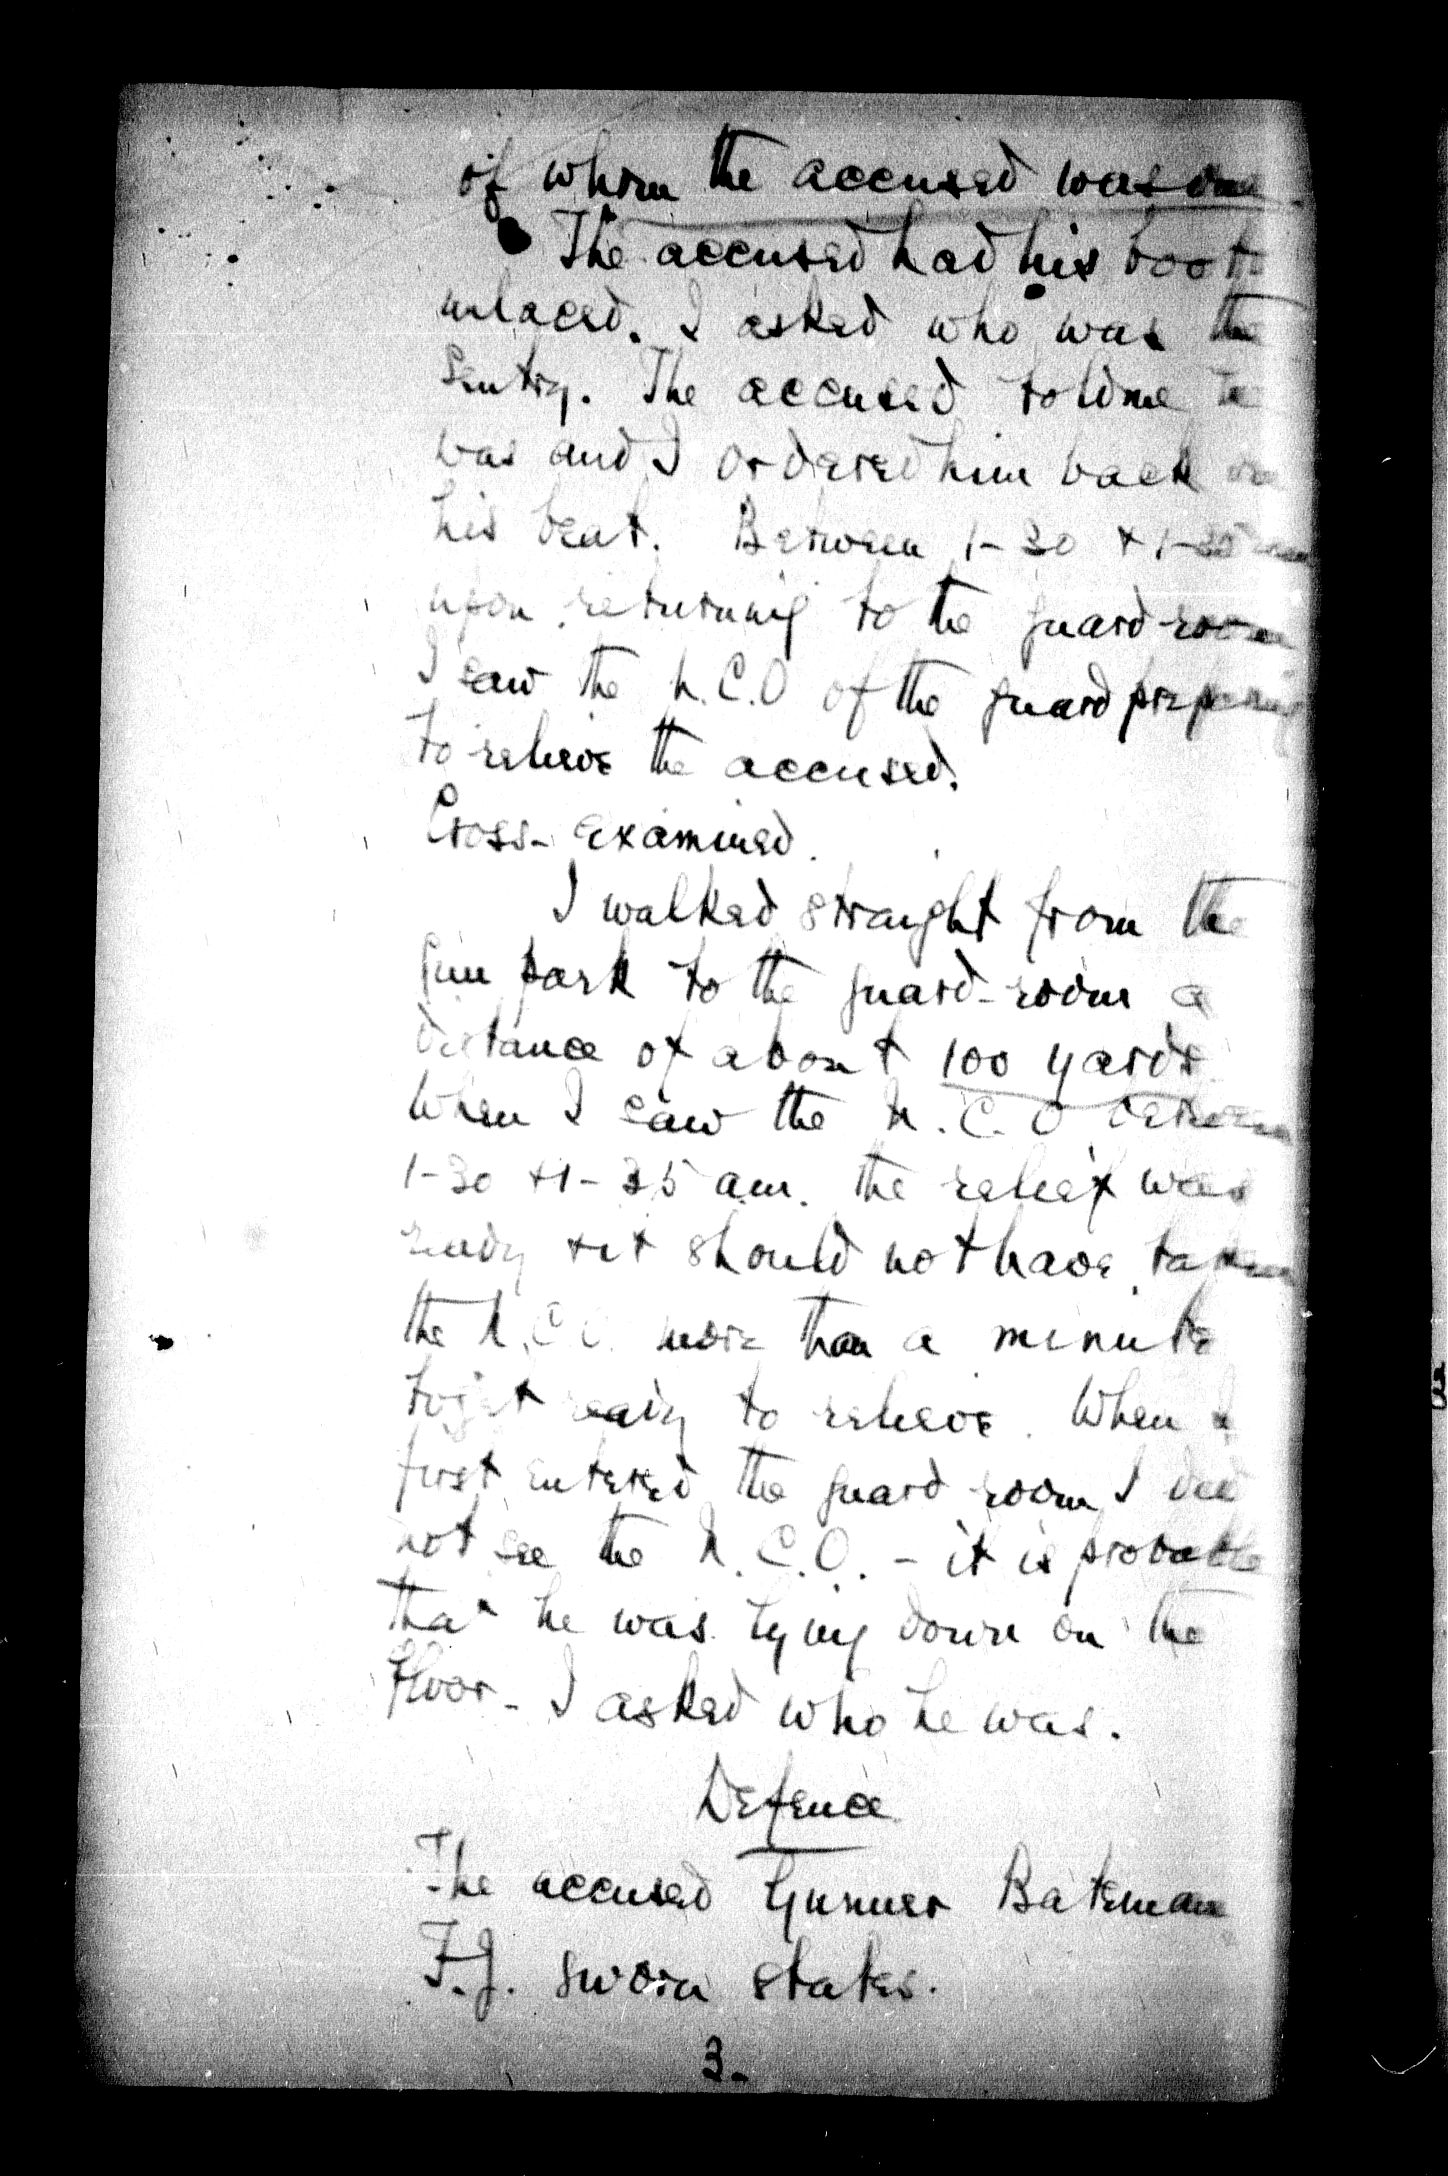 of whom the accused was one
The accused had his boots
unlaced. I asked who was the
Sentry. The accused told me he
was and I ordered him back on
his beat. Between 1-30 & 1-35 am
upon returning to the guard-room
I saw the N.C.O of the guard preparing
to relieve the accused.
Cross-examined.
I walked straight from the
Gun park to the guard-room a
distance of about 100 yards
When I saw the N.C.O between
1-30 & 1-35 a.m. the relief was
ready & it should not have taken
the N.C.O. more than a minute
to get ready to relieve. When I
first entered the guard room I did
not see the N.C.O. - it is probable
that he was lying down on the
floor - I asked who he was.
Defence
The accused Gunner Bateman
F.J. sworn states.
3.